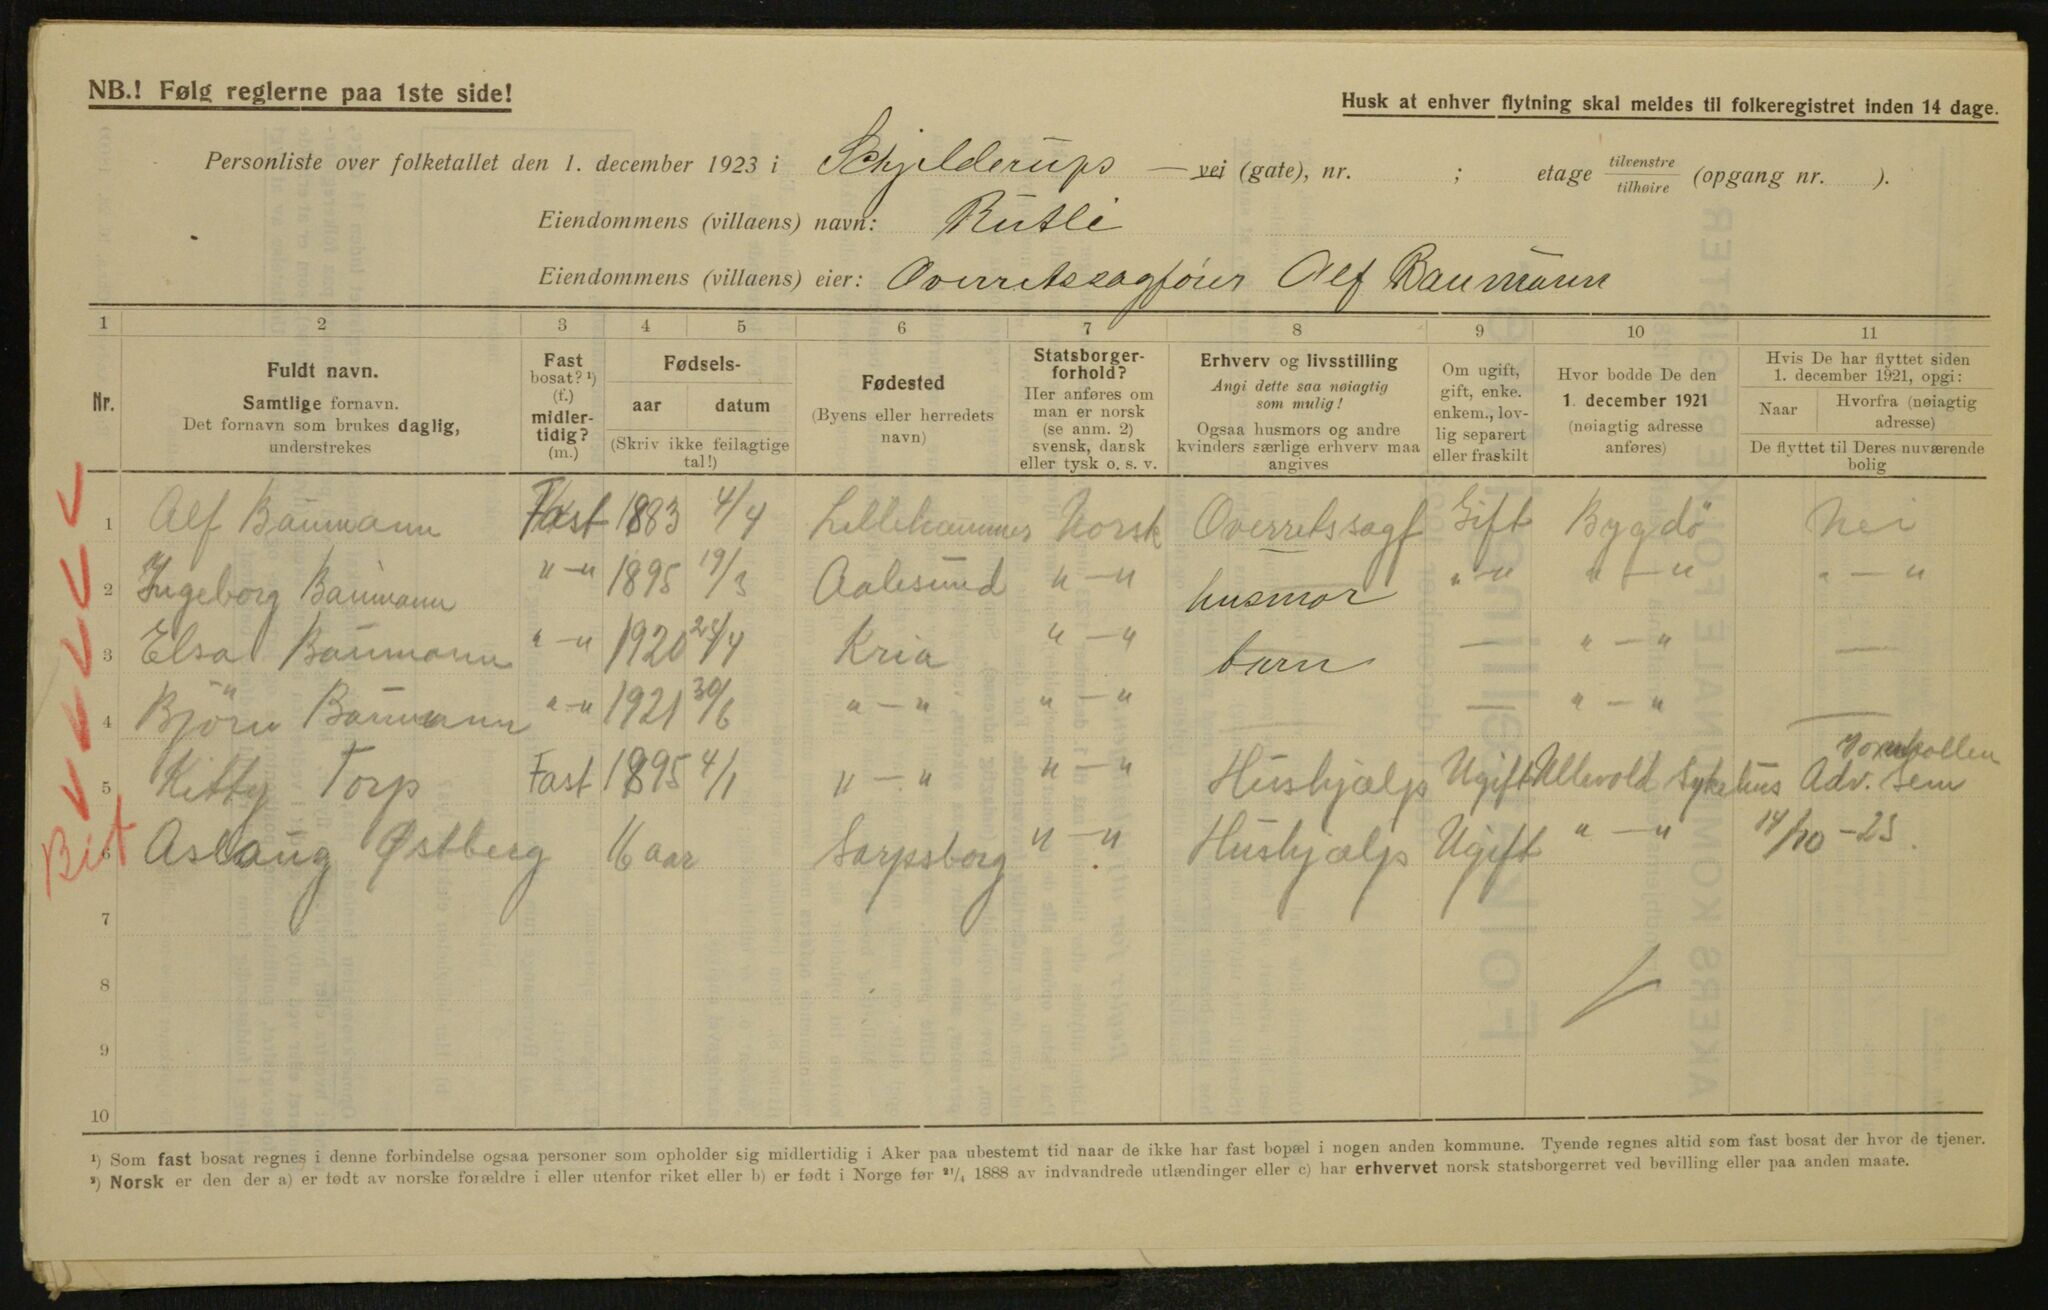 NB.! Følg reglerne paa 1ste side!
Husk at enhver flytning skal meldes til folkeregistret inden 14 dage.
Personliste over folketallet den 1. december 1923 i Schjelderups — vei (gate), nr. ; etage tilvenstre / tilhøire (opgang nr. ).
Eiendommens (villaens) navn: Rütli
Eiendommens (villaens) eier: Overretssagfører Alf Baumann
1 2 3 4 5 6 7 8 9 10 11
Nr.
Fuldt navn.
Samtlige fornavn.
Det fornavn som brukes daglig,
understrekes
Fast
bosat? ¹)
(f.)
midler-
tidig?
(m.)
Fødsels-
aar datum
(Skriv ikke feilagtige
tal!)
Fødested
(Byens eller herredets
navn)
Statsborger-
forhold?
Her anføres om
man er norsk
(se anm. 2)
svensk, dansk
eller tysk o. s. v.
Erhverv og livsstilling
Angi dette saa nøiagtig
som mulig!
Ogsaa husmors og andre
kvinders særlige erhverv maa
angives
Om ugift,
gift, enke.
enkem., lov-
lig separert
eller fraskilt
Hvor bodde De den
1. december 1921
(nøiagtig adresse
anføres)
Hvis De har flyttet siden
1. december 1921, opgi:
Naar Hvorfra (nøiagtig
adresse)
De flyttet til Deres nuværende
bolig
1 Alf Baumann Fast 1883 4/4 Lillehammer Norsk Overretssagf Gift Bygdö Nei
2 Ingeborg Baumann " — " 1895 19/3 Aalesund " — " husmor " — " " — " " — "
3 Elsa Baumann " — " 1920 /4 Kria " — " barn — " — " —
4 Björn Baumann " — " 1921 30/6 " — " " — " — " — " —
5 Kitty Torp Fast 1895 4/1 " — " " — " Hushjælp Ugift Ullevold Sykehus Adv. Sem
6 Aslaug Østberg 16 aar Sarpsborg " — " Hushjælp Ugift " — " 14/10 - 23.
Bit
7
8
9
10
¹) Som fast bosat regnes i denne forbindelse ogsaa personer som opholder sig midlertidig i Aker paa ubestemt tid naar de ikke har fast bopæl i nogen anden kommune. Tyende regnes altid som fast bosat der hvor de tjener.
²) Norsk er den der a) er født av norske forældre i eller utenfor riket eller b) er født i Norge før 21/4 1888 av indvandrede utlændinger eller c) har erhvervet norsk statsborgerret ved bevilling eller paa anden maate.